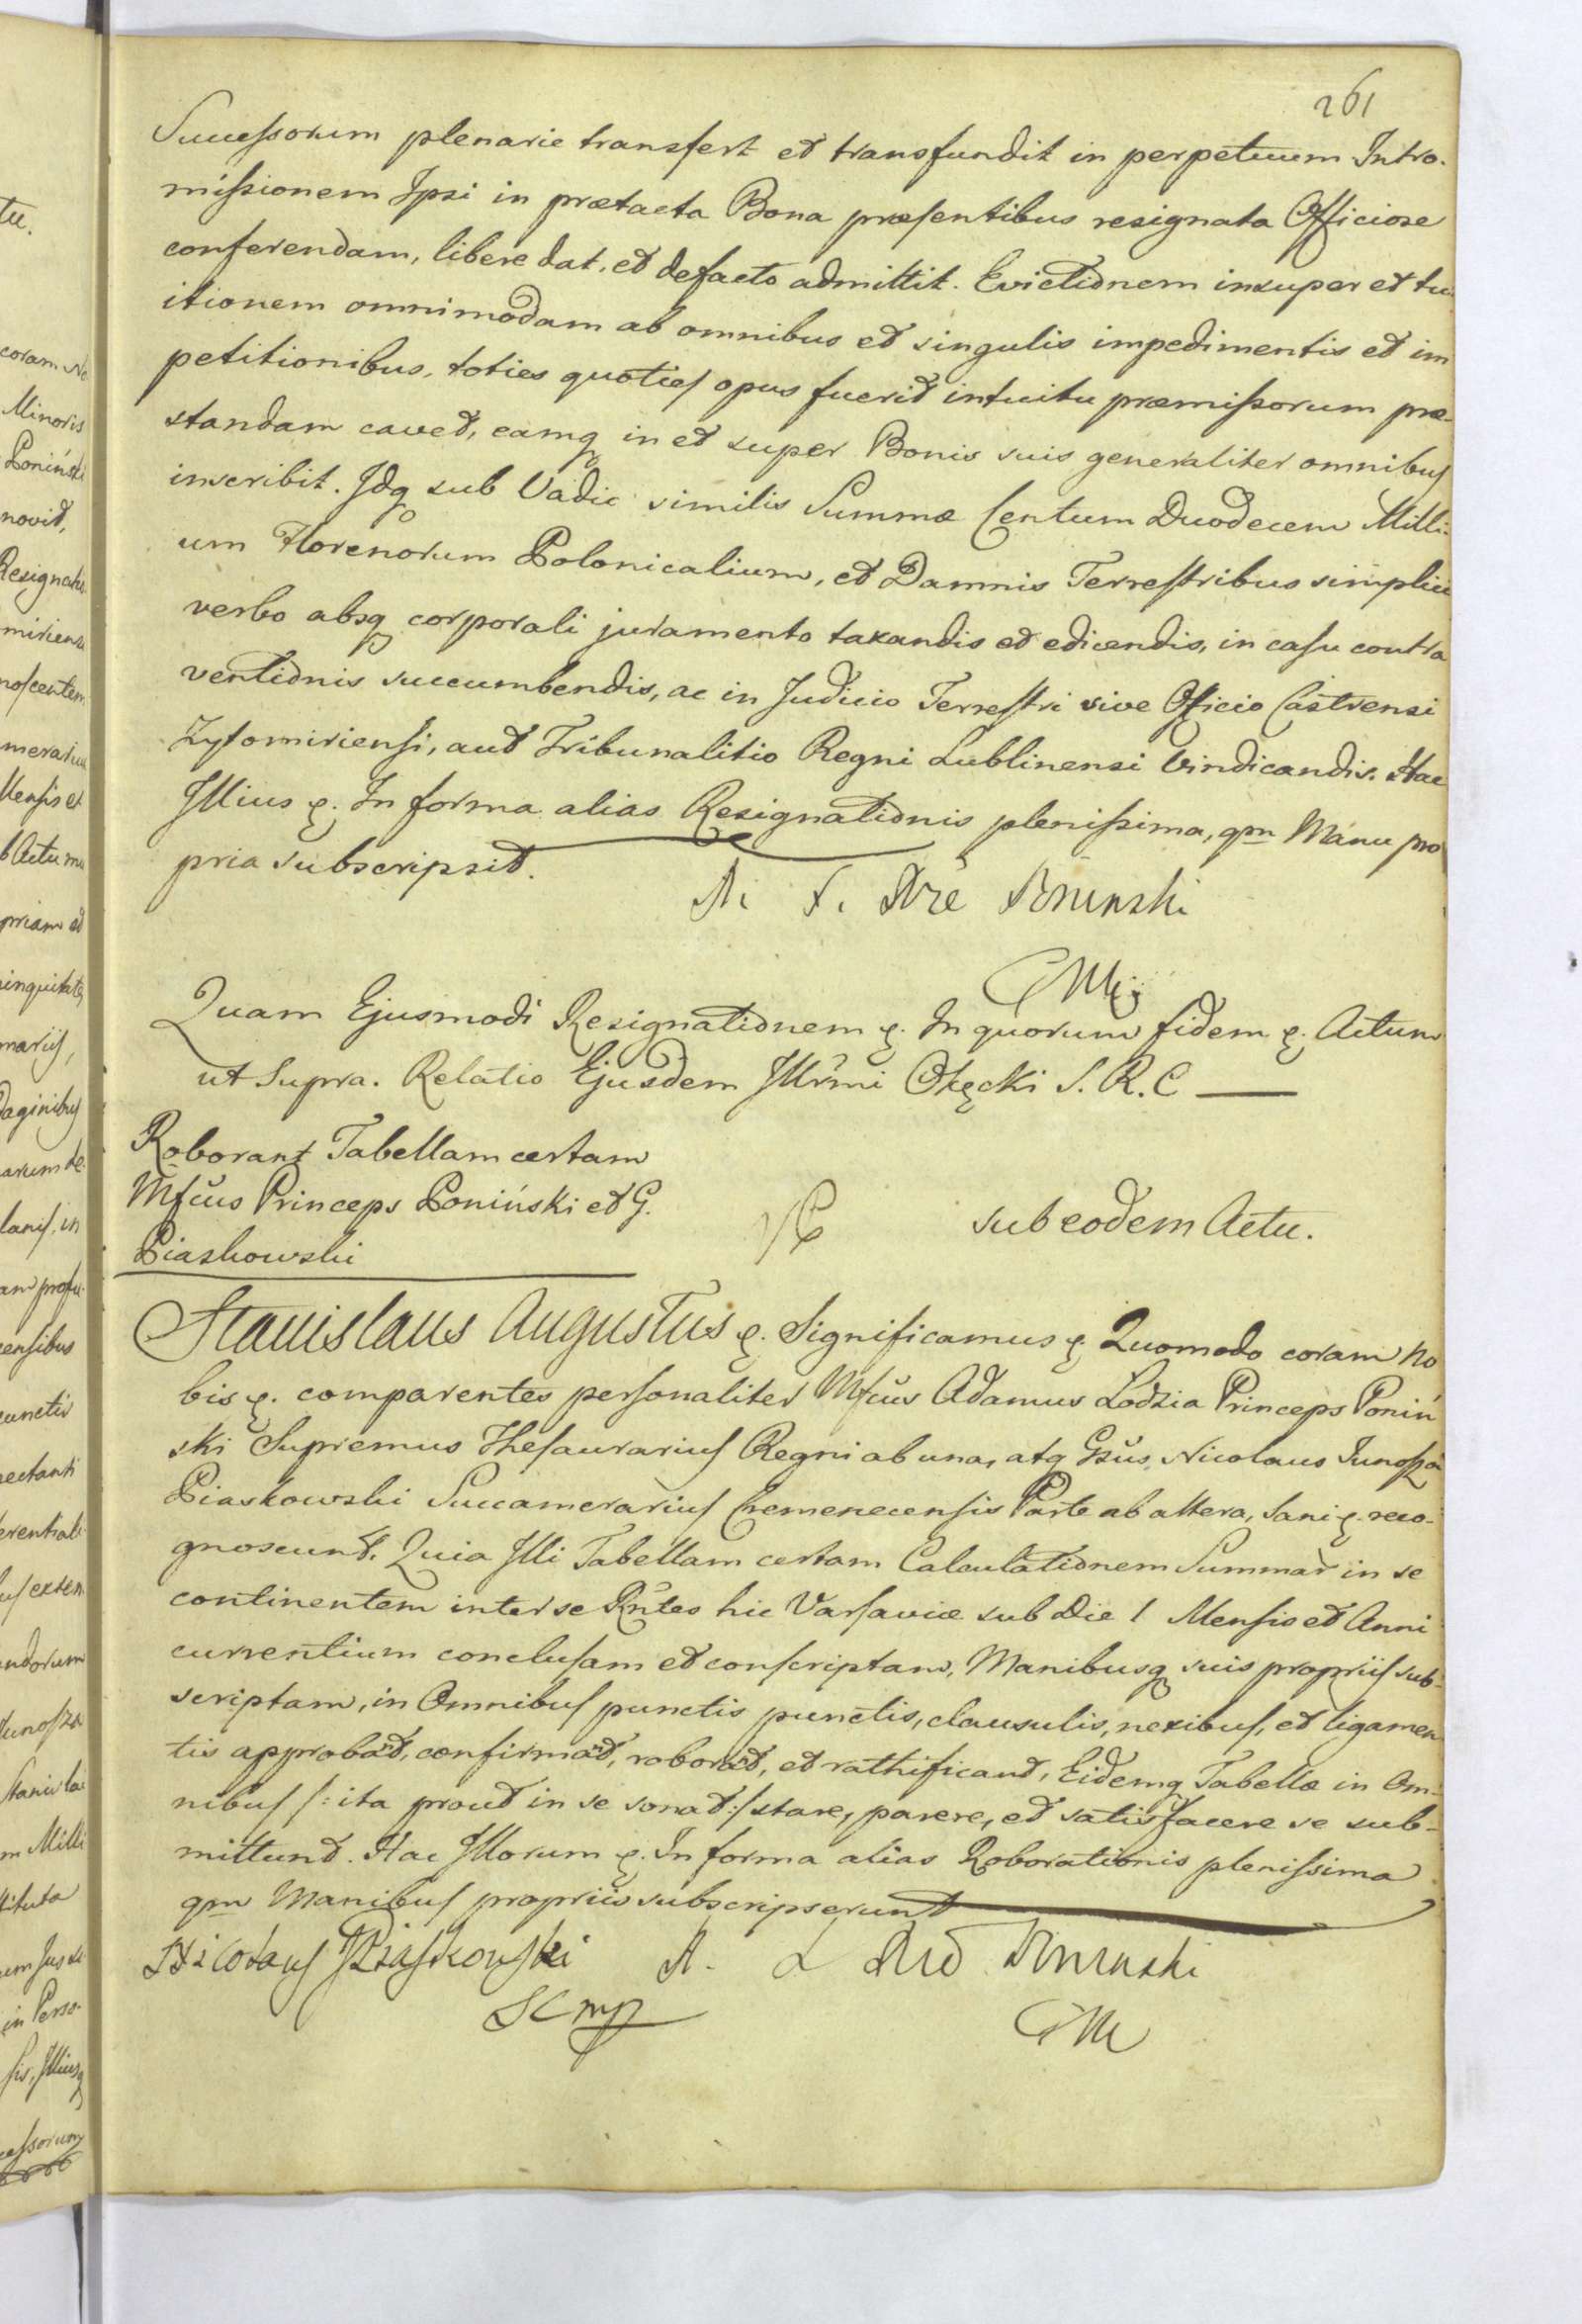 261
Successorum plenarie transfert et transfundit in perpetuum Intro-
missionem Ipsi in prætacta Bona præsentibus resignata Officiose
conferendam, libere dat, et defacto admittit. Evictionem insuper et tu-
itionem omnimodam ab omnibus et singulis impedimentis et im
petitionibus, toties quoties opus fuerit intuitu præmissorum præ-
standam cavet, eamq in et super Bonis suis generaliter omnibus
inscribit. Idq sub Vadio similis Summæ Centum Duodecem Milli-
um Florenorum Polonicalium, et Damnis Terrestribus simplici
verbo absq corporali juramento taxandis et edicendis, in casu contra
ventionis succumbendis, ac in Judicio Terrestri sive Officio Castrensi
Zytomiriensi, aut Tribunalitio Regni Lublinensi Vindicandis. Hac
Illius &. In forma alias Resignationis plenissima, qm Manu pro
pria subscripsit.
Poninski
Quam Ejusmodi Resignationem &. In quorum fidem &. Actum
ut Supra. Relatio Ejusdem Illrmi Okęcki S. R. C
Roborant Tabellam certam
Mfcus Princeps Poniński et G.
Piaskowski
sub eodem Actu.
Stanislaus Augustus &. Significamus &. Quomodo coram No
bis &. comparentes personaliter Mfcus Adamus Lodzia Princeps Poniń
ski Supremus Thesaurarius Regni ab una, atq Gsus Nicolaus Junosza
Piaskowski Succamerarius Cremenecensis Parte ab altera, Sani &. reco-
gnoscunt. Quia Illi Tabellam certam Calculationem Summar in se
continentem inter se Rntes hic Varsaviæ sub Die 1 Mensis et Anni
currentium conclusam et conscriptam, Manibusq suis propriis sub-
scriptam, in Omnibus punctis punctis, clausulis, nexibus, et ligamen
tis approbat, confirmat, roborat, et rathificant, Eidemq Tabellæ in Om-
nibus /: ita prout in se sonat :/ stare, parere, et satisfacere se sub-
mittunt. Hac Illorum &. In forma alias Roborationis plenissima
qm Manibus propriis subscripserunt
Nicolaus Piaskowski A. L Poninski
SK mp